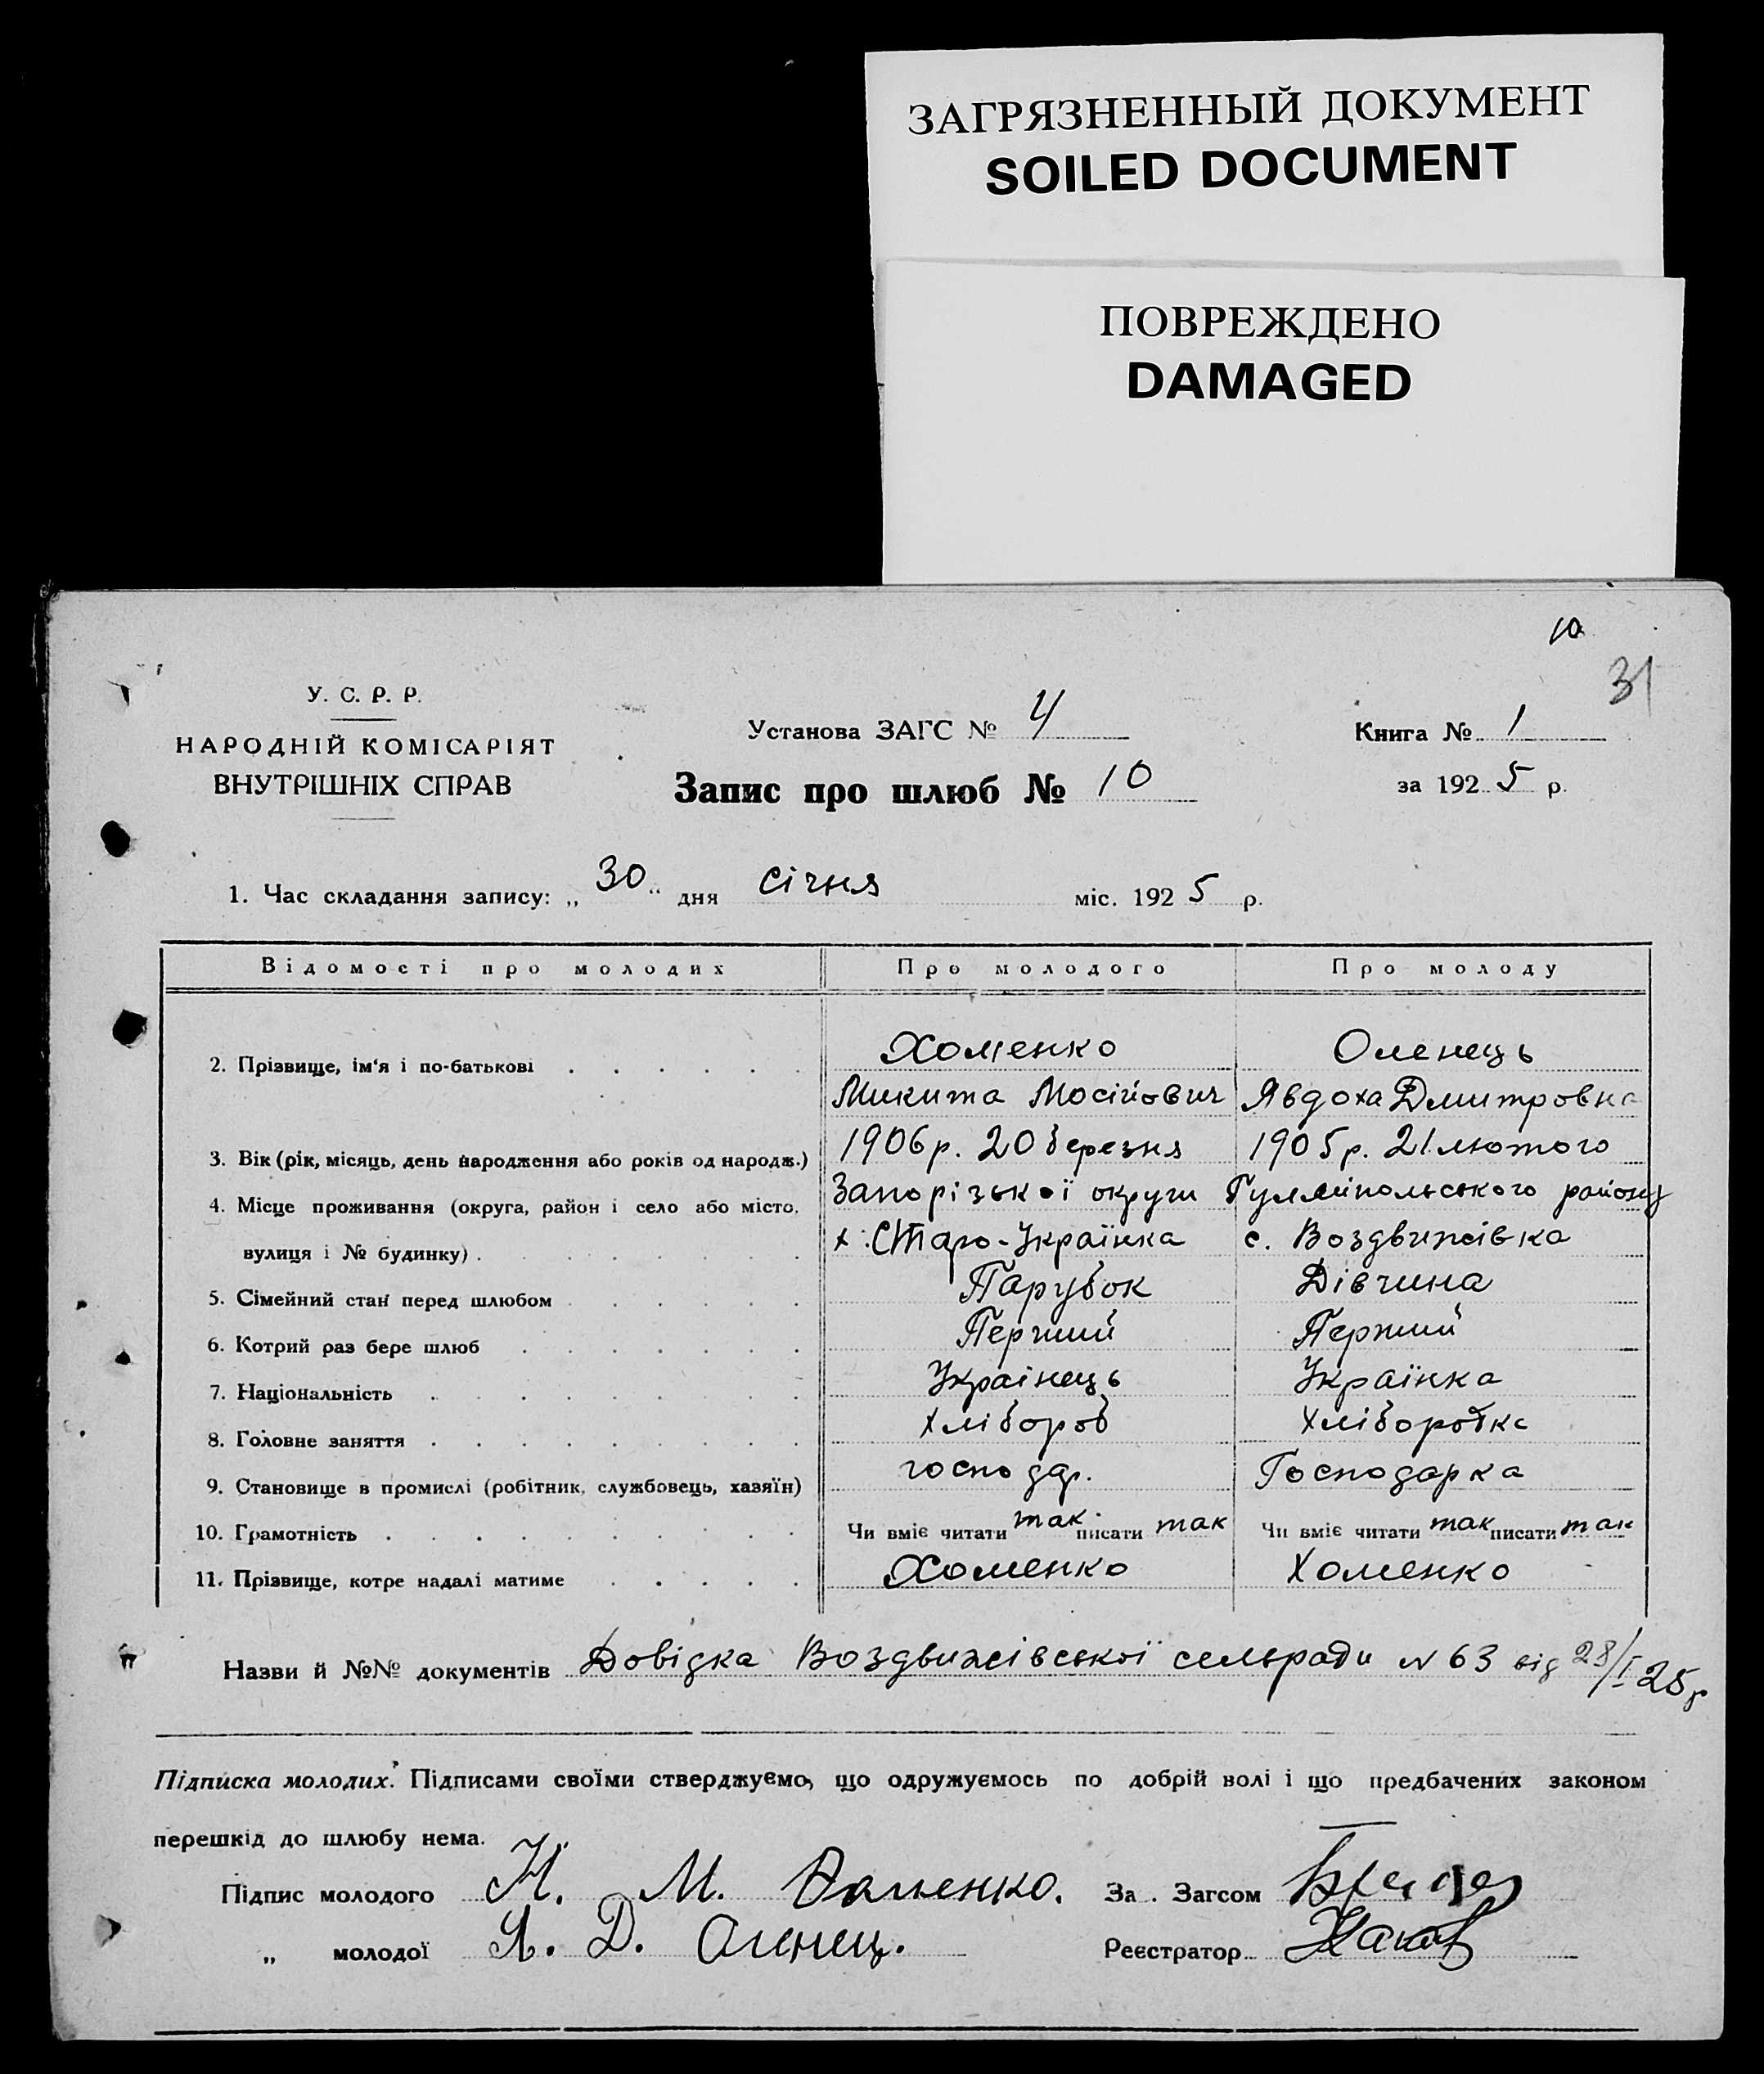 ЗАГРЯЗНЕННЫЙ ДОКУМЕНТ
SOILED DOCUMENT
ПОВРЕЖДЕНО
DAMAGED
10
31
У. С. Р. Р.
НАРОДНІЙ КОМІСАРІЯТ
ВНУТРІШНІХ СПРАВ
Установа ЗАГС № 4
Запис про шлюб № 10
Книга № 1
за 1925 р.
1. Час складання запису: „30“ дня січня міс. 1925 р.
Відомості про молодих Про молодого Про молоду
2. Прізвище, ім'я і по-батькові Хоменко Оленець
Микита Мосійович Явдоха Дмитровна
3. Вік (рік, місяць, день народження або років од народж.) 1906 р. 20 березня 1905 р. 21 лютого
4. Місце проживання (округа, район і село або місто, Запорізької округи Гуляйпольського району
вулиця і № будинку) х. Старо-Українка с. Воздвижівка
5. Сімейний стан перед шлюбом Парубок Дівчина
6. Котрий раз бере шлюб Перший Перший
7. Національність Українець Українка
8. Головне заняття Хлібороб Хліборобка
9. Становище в промислі (робітник, службовець, хазяїн) господар. Господарка
10. Грамотність Чи вміє читати так писати так Чи вміє читати так писати так
11. Прізвище, котре надалі матиме Хоменко Хоменко
Назви й №№ документів Довідка Воздвижівської сельради N 63 від 28/I 25 р
Підписка молодих. Підписами своїми стверджуємо, що одружуємось по добрій волі і що предбачених законом
перешкід до шлюбу нема.
Підпис молодого Н. М. Хоменко. За Загсом
„ молодої Я. Д. Оленец. Реєстратор